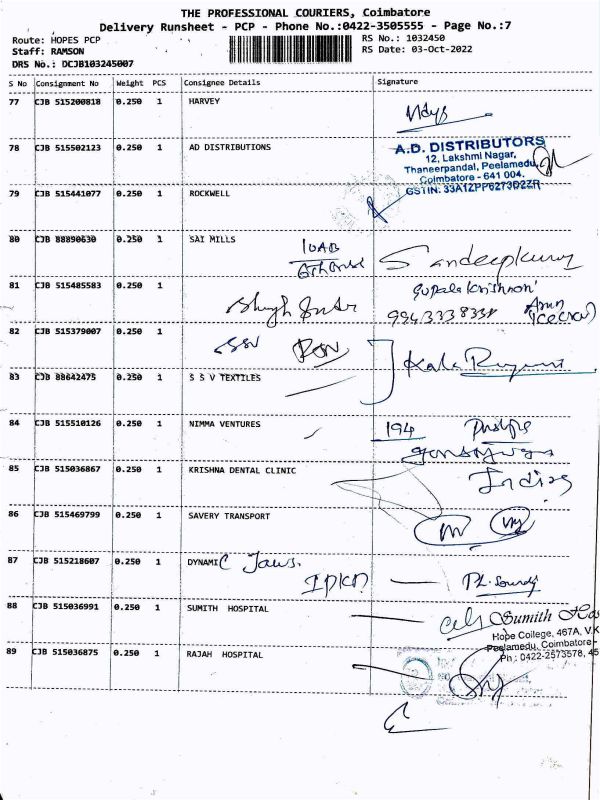 THE PROFESSIONAL COURIERS, Coimbatore
Delivery Runsheet - PCP - Phone No.:0422-3505555 - Page No.:7
Route: HOPES PCP
RS No.: 1032450
Staff: RAMSON
RS Date: 03-Oct-2022
DRS No.: DCJB103245007
S No Consignment No Weight PCS Consignee Details Signature
77 CJB 515200818 0.250 1 HARVEY
78 CJB 515502123 0.250 1 AD DISTRIBUTIONS
A.D. DISTRIBUTORS
12, Lakshmi Nagar,
Thaneerpandal, Peelamedu,
Coimbatore - 641 004.
GSTIN: 33A1ZPP6273D2ZR
79 CJB 515441077 0.250 1 ROCKWELL
80 CJB 88890630 0.250 1 SAI MILLS
Sandeepkumar
81 CJB 515485583 0.250 1
Gopala Krishnan
9943338338
82 CJB 515379007 0.250 1
SSV
83 CJB 88642475 0.250 1 S S V TEXTILES
84 CJB 515510126 0.250 1 NIMMA VENTURES
194
85 CJB 515036867 0.250 1 KRISHNA DENTAL CLINIC
86 CJB 515469799 0.250 1 SAVERY TRANSPORT
87 CJB 515218607 0.250 1 DYNAMIC Jaws.
88 CJB 515036991 0.250 1 SUMITH HOSPITAL
Sumith Hos
Hope College, 467A, V.K
Peelamedu, Coimbatore -
Ph : 0422-2573578, 45
89 CJB 515036875 0.250 1 RAJAH HOSPITAL